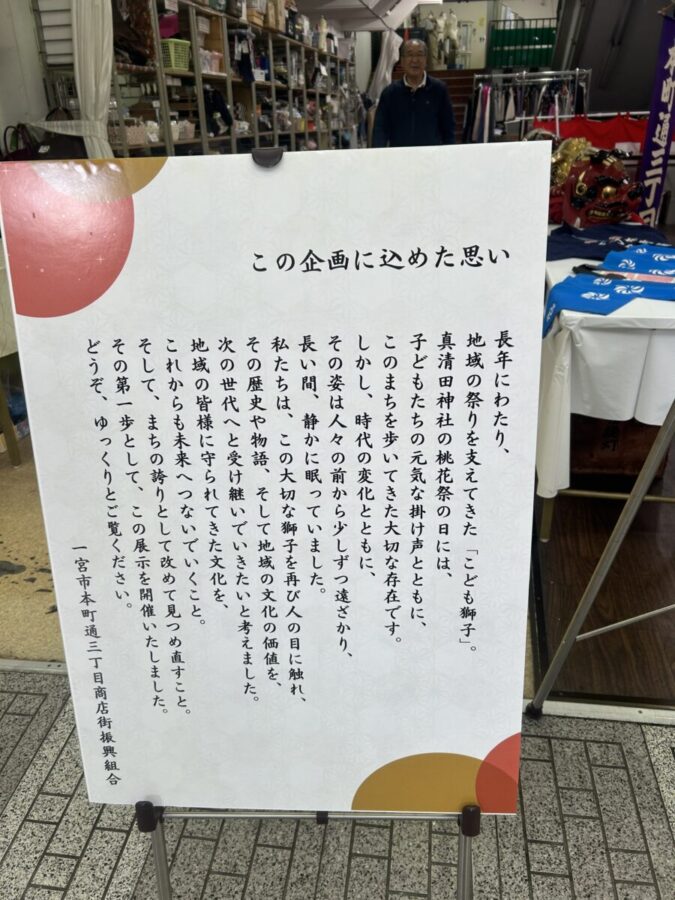 この企画に込めた思い
長年にわたり、
地域の祭りを支えてきた「こども獅子」。
真清田神社の桃花祭の日には、
子どもたちの元気な掛け声とともに、
このまちを歩いてきた大切な存在です。
しかし、時代の変化とともに、
その姿は人々の前から少しずつ遠ざかり、
長い間、静かに眠っていました。
私たちは、この大切な獅子を再び人の目に触れ、
その歴史や物語、そして地域の文化の価値を、
次の世代へと受け継いでいきたいと考えました。
地域の皆様に守られてきた文化を、
これからも未来へつないでいくこと。
そして、まちの誇りとして改めて見つめ直すこと。
その第一歩として、この展示を開催いたしました。
どうぞ、ゆっくりとご覧ください。
一宮市本町通三丁目商店街振興組合
本町通三丁目